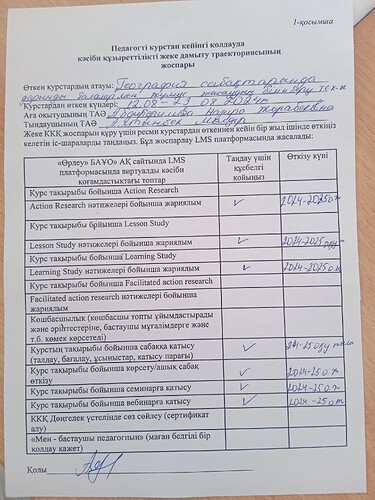 1-қосымша
Педагогті курстан кейінгі қолдауда
кәсіби құзыреттілікті жеке дамыту траекториясының
жоспары
Өткен курстардың атауы: География сабақтарында
дарынды балалармен жұмыс жасаудың
Курстардан өткен күндері: 12.08 – 23 08 2024ж
Аға оқытушының ТАӘ
Тыңдаушының ТАӘ
Жеке ККҚ жоспарын құру үшін ресми курстардан өткеннен кейін бір жыл ішінде өткіңіз
келетін іс-шараларды таңдаңыз. Бұл жоспарлау LMS платформасында жасалады:
«Өрлеу» БАҰО» АҚ сайтында LMS
платформасында виртуалды кәсіби
қоғамдастықтағы топтар
Таңдау үшін
құсбелгі
қойыңыз
Өткізу күні
Курс тақырыбы бойынша Action Research
Action Research нәтижелері бойынша жариялым ✓ 2024-2025
Курс тақырыбы бойынша Lesson Study
Lesson Study нәтижелері бойынша жариялым ✓ 2024-2025
Курс тақырыбы бойынша Learning Study
Learning Study нәтижелері бойынша жариялым ✓ 2024-2025
Курс тақырыбы бойынша Facilitated action research
Facilitated action research нәтижелері бойынша
жариялым
Көшбасшылық (көшбасшы топты ұйымдастырады
және әріптестеріне, бастаушы мұғалімдерге және
т.б. көмек көрсетеді)
Курстың тақырыбы бойынша сабаққа қатысу
(талдау, бағалау, ұсыныстар, қатысу парағы) ✓
Курс тақырыбы бойынша көрсету/ашық сабақ
өткізу ✓ 2024-25
Курс тақырыбы бойынша семинарға қатысу ✓ 2024-25
Курс тақырыбы бойынша вебинарға қатысу ✓ 2024-25
ККҚ Дөңгелек үстелінде сөз сөйлеу (сертификат
алу)
«Мен - бастаушы педагогпын» (маған белгілі бір
қолдау қажет)
Қолы